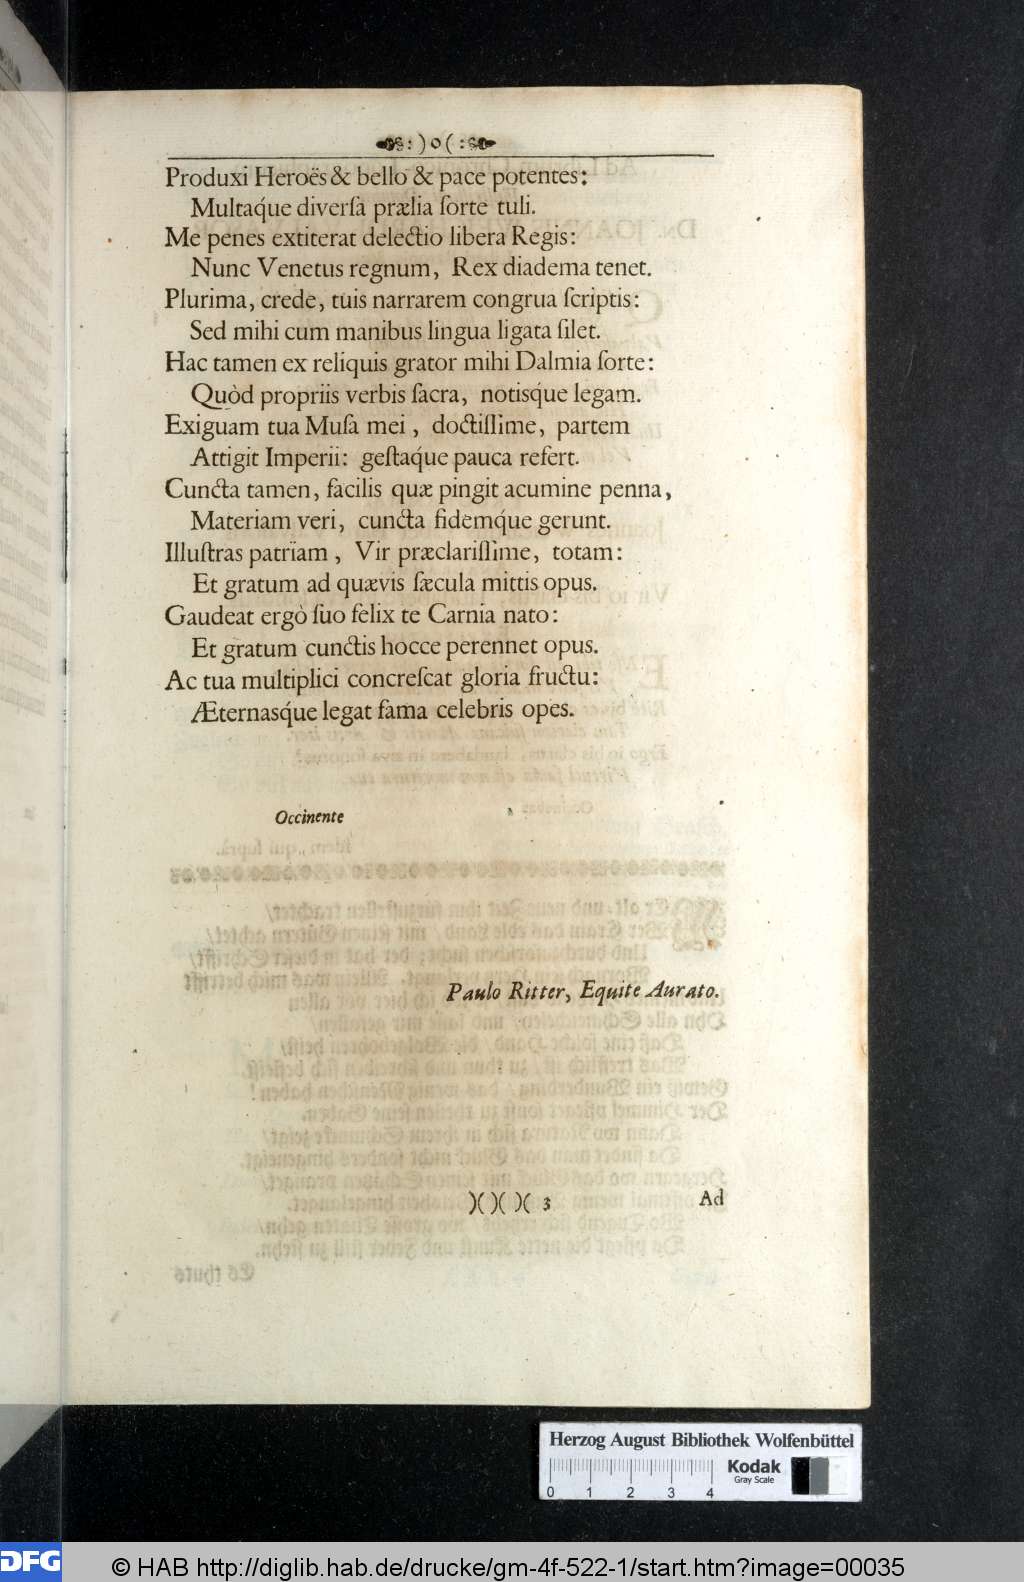 :)o(:
Produxi Heroës & bello & pace potentes:
Multaq́ue diverſa prælia ſorte tuli.
Me penes extiterat delectio libera Regis:
Nunc Venetus regnum, Rex diadema tenet.
Plurima, crede, tuis narrarem congrua ſcriptis:
Sed mihi cum manibus lingua ligata ſilet.
Hac tamen ex reliquis grator mihi Dalmia ſorte:
Quòd propriis verbis ſacra, notisq́ue legam.
Exiguam tua Muſa mei, doctiſſime, partem
Attigit Imperii: geſtaq́ue pauca refert.
Cuncta tamen, facilis quæ pingit acumine penna,
Materiam veri, cuncta fidemq́ue gerunt.
Illuſtras patriam, Vir præclariſſime, totam:
Et gratum ad quævis ſæcula mittis opus.
Gaudeat ergò ſuo felix te Carnia nato:
Et gratum cunctis hocce perennet opus.
Ac tua multiplici concreſcat gloria fructu:
Æternasq́ue legat fama celebris opes.
Occinente
Paulo Ritter, Equite Aurato.
)( )( )( 3
Ad
Herzog August Bibliothek Wolfenbüttel
Kodak
Gray Scale
0 1 2 3 4
DFG
© HAB http://diglib.hab.de/drucke/gm-4f-522-1/start.htm?image=00035